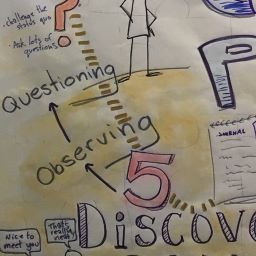 • challenge the
status quo
• Ask lots of
questions
?
Questioning
Observing
5
JOURNAL
Nice to
meet you
That's
really
neat
DISCOVE